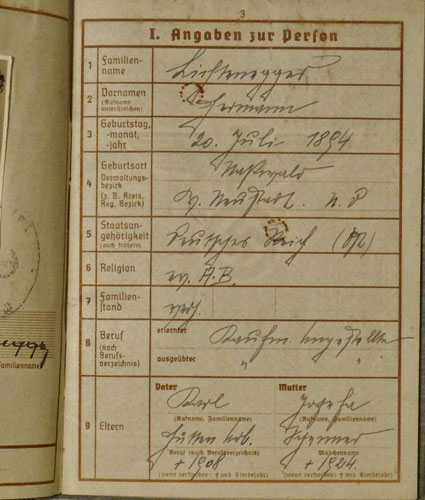 3
I. Angaben zur Person
1 Familien-
name
Lichtenegger
2 Vornamen
(Rufname
unterstreichen)
Hermann
3 Geburtstag,
-monat,
-jahr
20. Juli 1894
4 Geburtsort
Verwaltungs-
bezirk
(z. B. Kreis,
Reg. Bezirk)
Naßwald
W. Neustadt N. D
5 Staatsan-
gehörigkeit
(auch frühere)
Deutsches Reich
6 Religion
ev. A.B.
7 Familien-
stand
verh.
8 Beruf
(nach
Berufs-
verzeichnis)
erlernter
Kaufm. Angestellter
ausgeübter
" "
9 Eltern
Vater Mutter
Karl Josefa
(Rufname, Familienname) (Rufname, Familienname)
Hütten
Beruf (nach Berufsverzeichnis) Mädchenname
+ 1908 + 1924.
(wenn verstorben: † und Sterbejahr) (wenn verstorben: † und Sterbejahr)